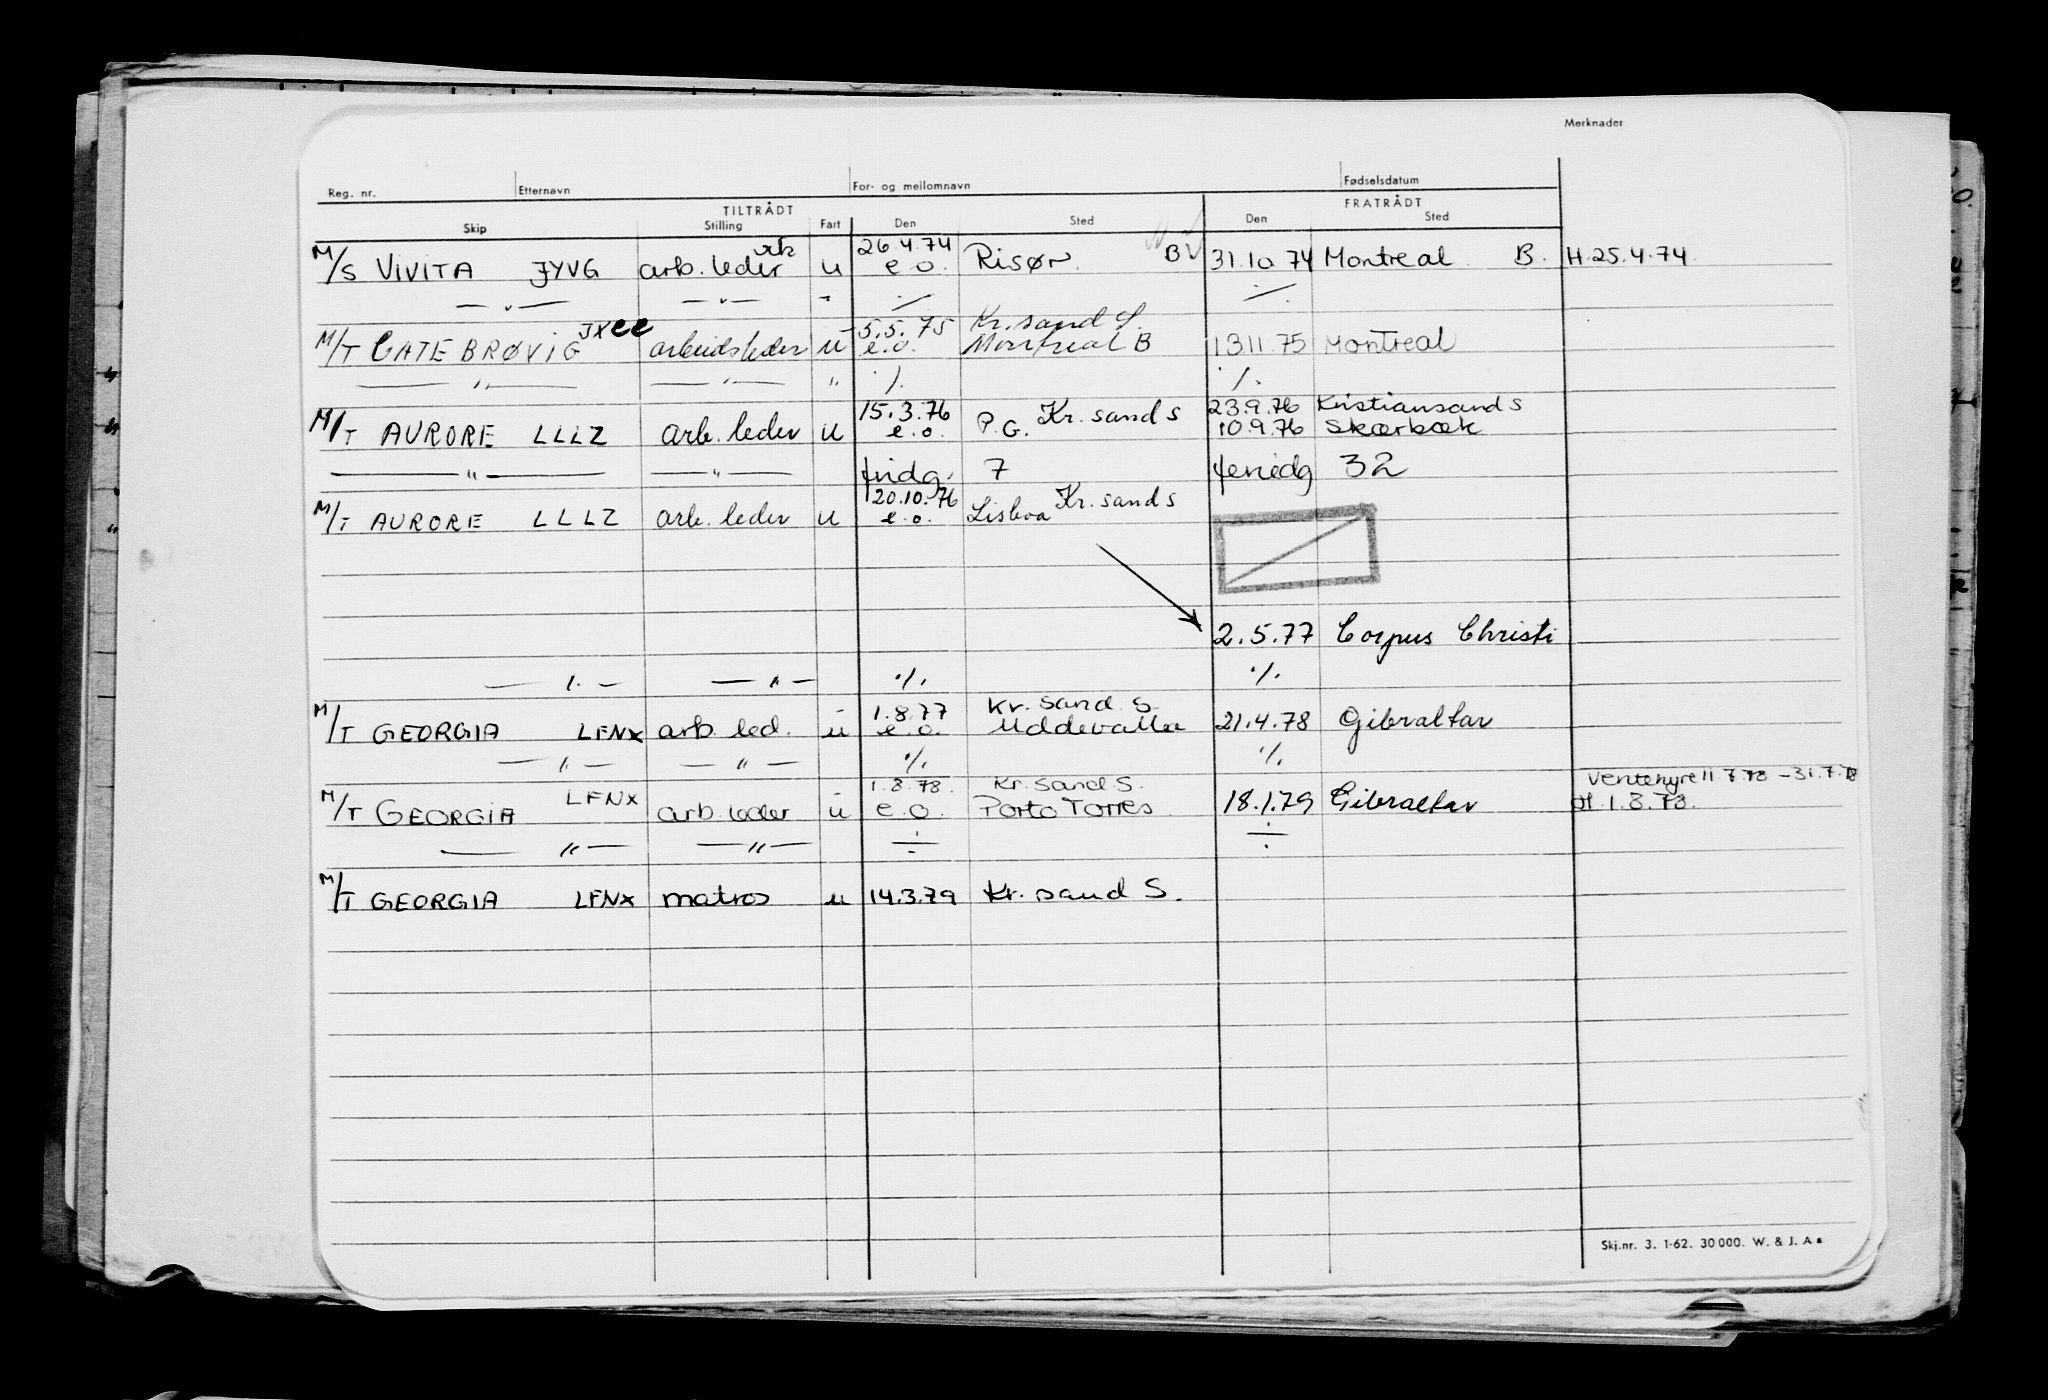 Merknader
Reg. nr. Etternavn For- og mellomnavn Fødselsdatum
TILTRÅDT FRATRÅDT
Skip Stilling Fart Den Sted Den Sted
M/S VIVITA JYVG arb. leder u 26.4.74 e.o. Risør BV 31.10.74 Montreal B. H.25.4.74.
— " — — " — " ./. ./.
M/T CATE BRØVIG JXEE arbeidsleder u 5.5.75 e.o. Kr.sand S. Montreal B 13.11.75 Montreal
— " — — " — " ./. ./.
M/T AURORE LLLZ arb. leder u 15.3.76 e.o. P.G. Kr. sand S 23.9.76 Kristiansand S
10.9.76 Skærbæk
— " — — " — fridg. 7 feriedg 32
M/T AURORE LLLZ arb. leder u 20.10.76 e.o. Lisboa Kr. sand S
2.5.77 Corpus Christi
— " — — " — ./. ./.
M/T GEORGIA LFNX arb. led. u 1.8.77 e.o. Kr. sand S. Uddevalla 21.4.78 Gibraltar
— " — — " — ./. ./.
M/T GEORGIA LFNX arb. leder u 1.8.78. e.o. Kr. Sand S. Porto Torres 18.1.79 Gibraltar Ventehyre 11.7.78 – 31.7.78
pt. 1.8.78.
— " — — " — ÷ ÷
M/T GEORGIA LFNX matros u 14.3.79 Kr. sand S.
Skj.nr. 3. 1-62. 30 000. W. & J. A s